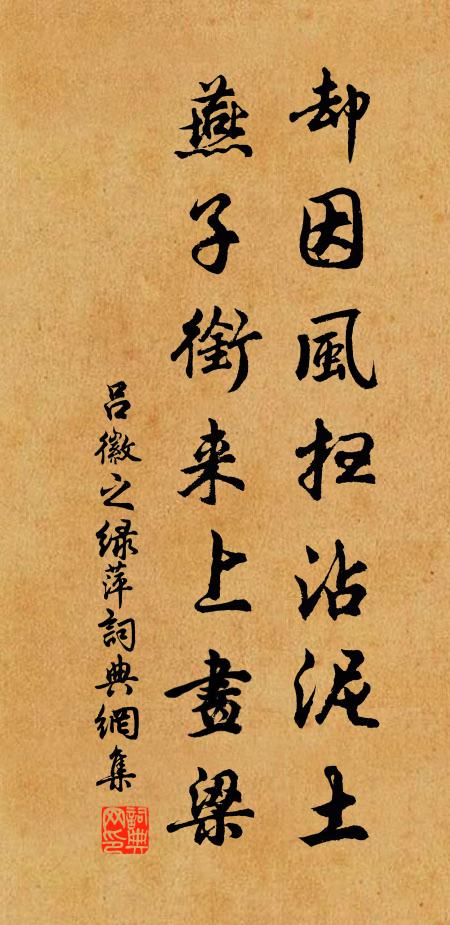 却因風扫沾泥土
燕子銜来上畫梁
吕徽之绿萍詞典網集
詞典网印